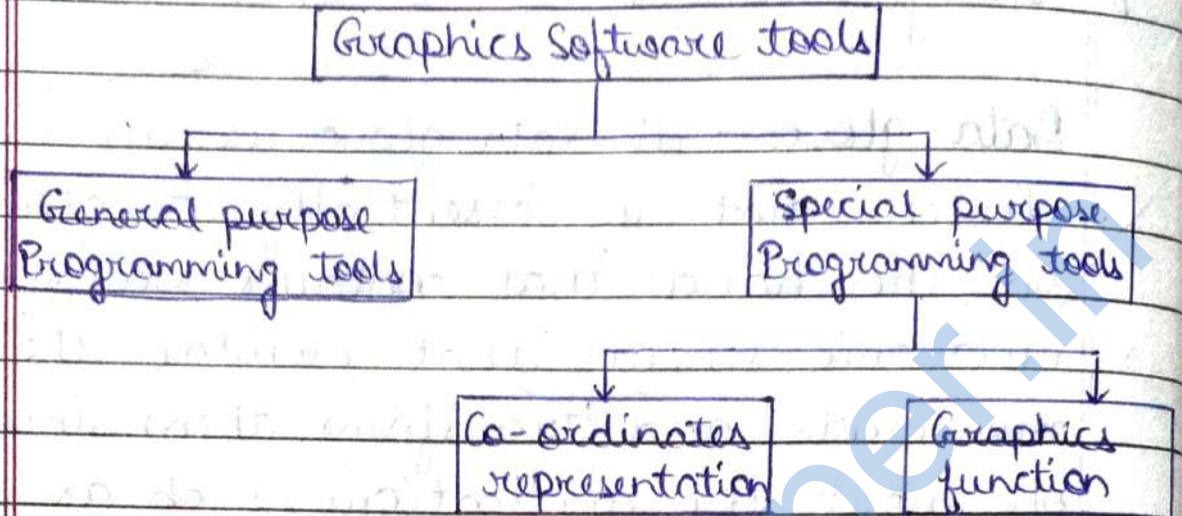 Graphics Software tools
General purpose
Programming tools
Special purpose
Programming tools
Co-ordinates
representation
Graphics
function
per.in